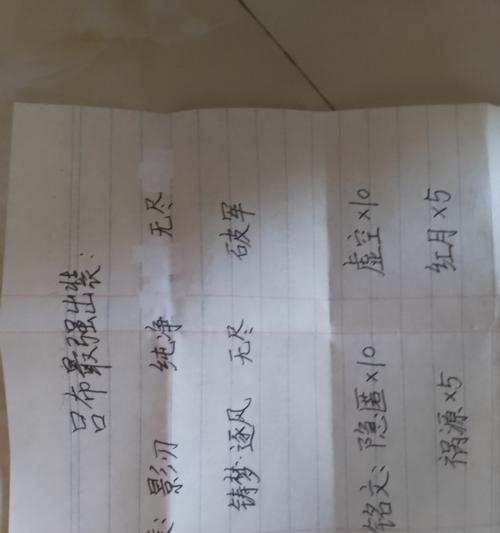 吕布最强出装:
: 影刃 纯净 无尽
铸梦·逐风 无尽 破军
铭文: 隐匿×10 虚空×10
祸源×5 红月×5